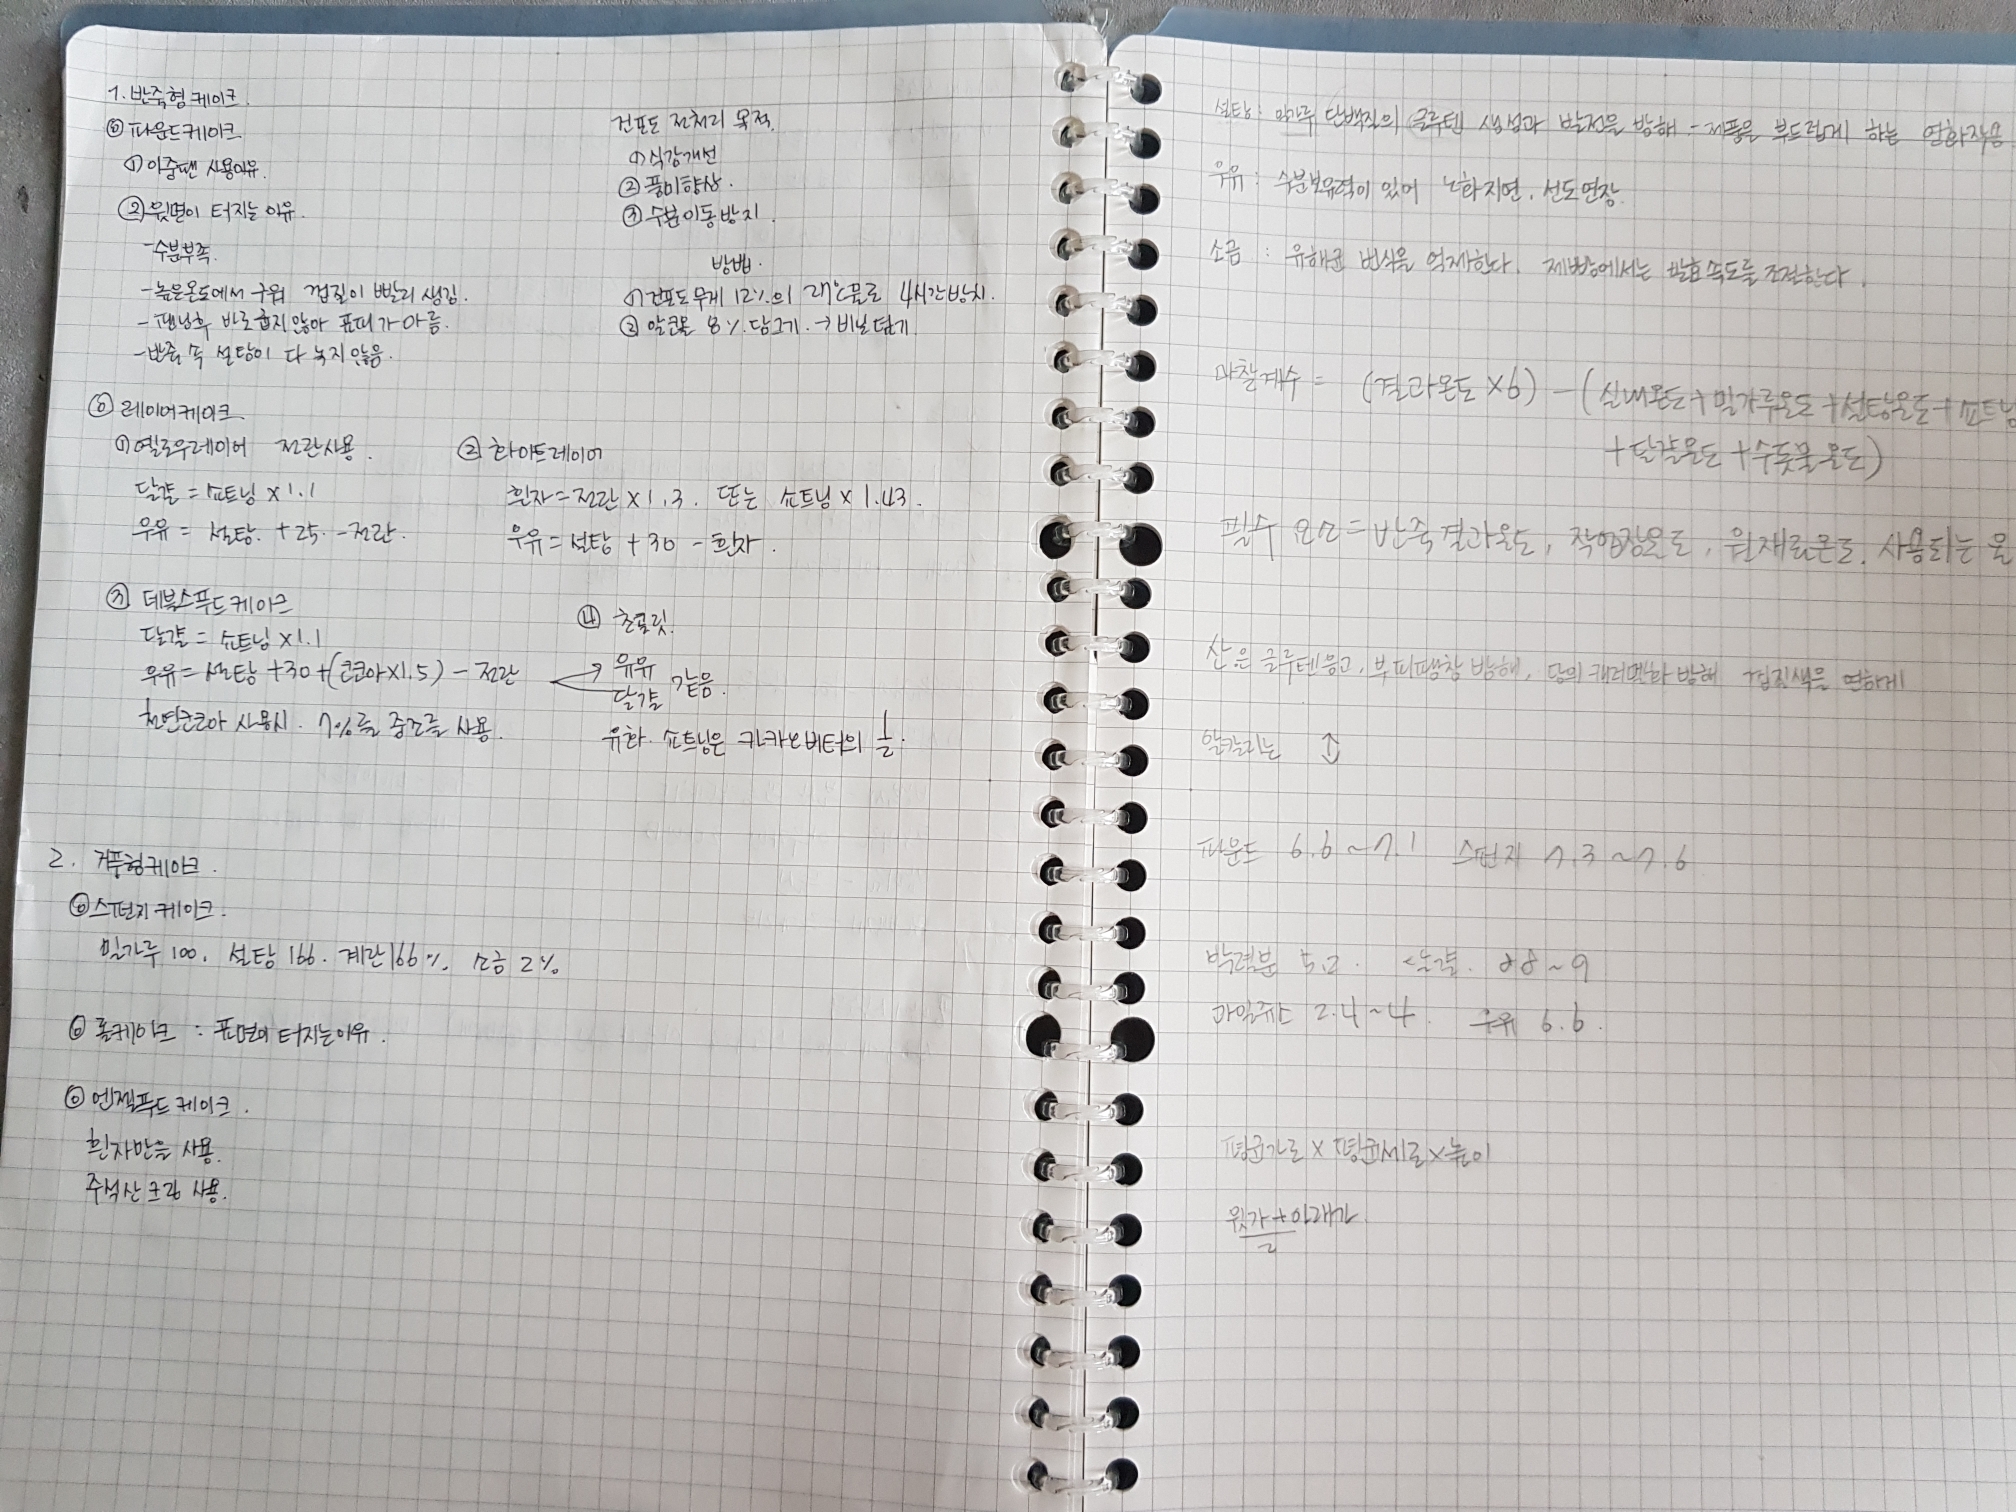 1. 반죽형 케이크.
◎ 파운드케이크
① 이중팬 사용이유.
② 윗면이 터지는 이유.
- 수분부족.
- 높은온도에서 구워 껍질이 빨리 생김.
- 팬닝후 바로 굽지 않아 표피가 마름.
- 반죽 속 설탕이 다 녹지 않음.
건포도 전처리 목적.
① 식감개선
② 풍미향상.
③ 수분이동방지.
방법.
① 건포도무게 12%의 27℃물로 4시간방치.
② 알코올 8% 담그기. → 비닐 덮기
◎ 레이어케이크
① 옐로우레이어 전란사용.
달걀 = 쇼트닝 × 1.1
우유 = 설탕. + 25. - 전란.
② 화이트레이어
흰자 = 전란 × 1.3. 또는 쇼트닝 × 1.43.
우유 = 설탕 + 30 - 흰자.
③ 데블스푸드케이크
달걀 = 쇼트닝 × 1.1
우유 = 설탕 + 30 + (코코아 × 1.5) - 전란
천연코코아 사용시. 7%를 중조를 사용.
④ 초콜릿.
우유
달걀 같음.
유화. 쇼트닝은 카카오버터의 ½.
2. 거품형케이크.
◎ 스펀지 케이크.
밀가루 100. 설탕 166. 계란 166%. 소금 2%
◎ 롤케이크 : 표면이 터지는이유.
◎ 엔젤푸드 케이크.
흰자만을 사용.
주석산 크림 사용.
설탕 : 밀가루 단백질의 글루텐 생성과 발전을 방해 - 제품을 부드럽게 하는 연화작용
우유 : 수분보유력이 있어 노화지연. 선도연장.
소금 : 유해균 번식을 억제한다. 제빵에서는 발효속도를 조절한다.
마찰계수 = (결과온도 × 6) - (실내온도 + 밀가루온도 + 설탕온도 + 쇼트닝
+ 달걀온도 + 수돗물온도)
필수 요소 = 반죽결과온도, 작업장온도, 원재료온도. 사용되는 물
산은 글루텐응고, 부피팽창 방해, 당의 캐러멜화 방해 껍질색을 연하게
알칼리는 ↕
파운드 6.6 ~ 7.1 스펀지 7.3 ~ 7.6
박력분 5.2. 8.8 ~ 9
과일쥬스 2.4 ~ 4. 우유 6.6.
평균가로 × 평균세로 × 높이
윗가 + 아래가
2